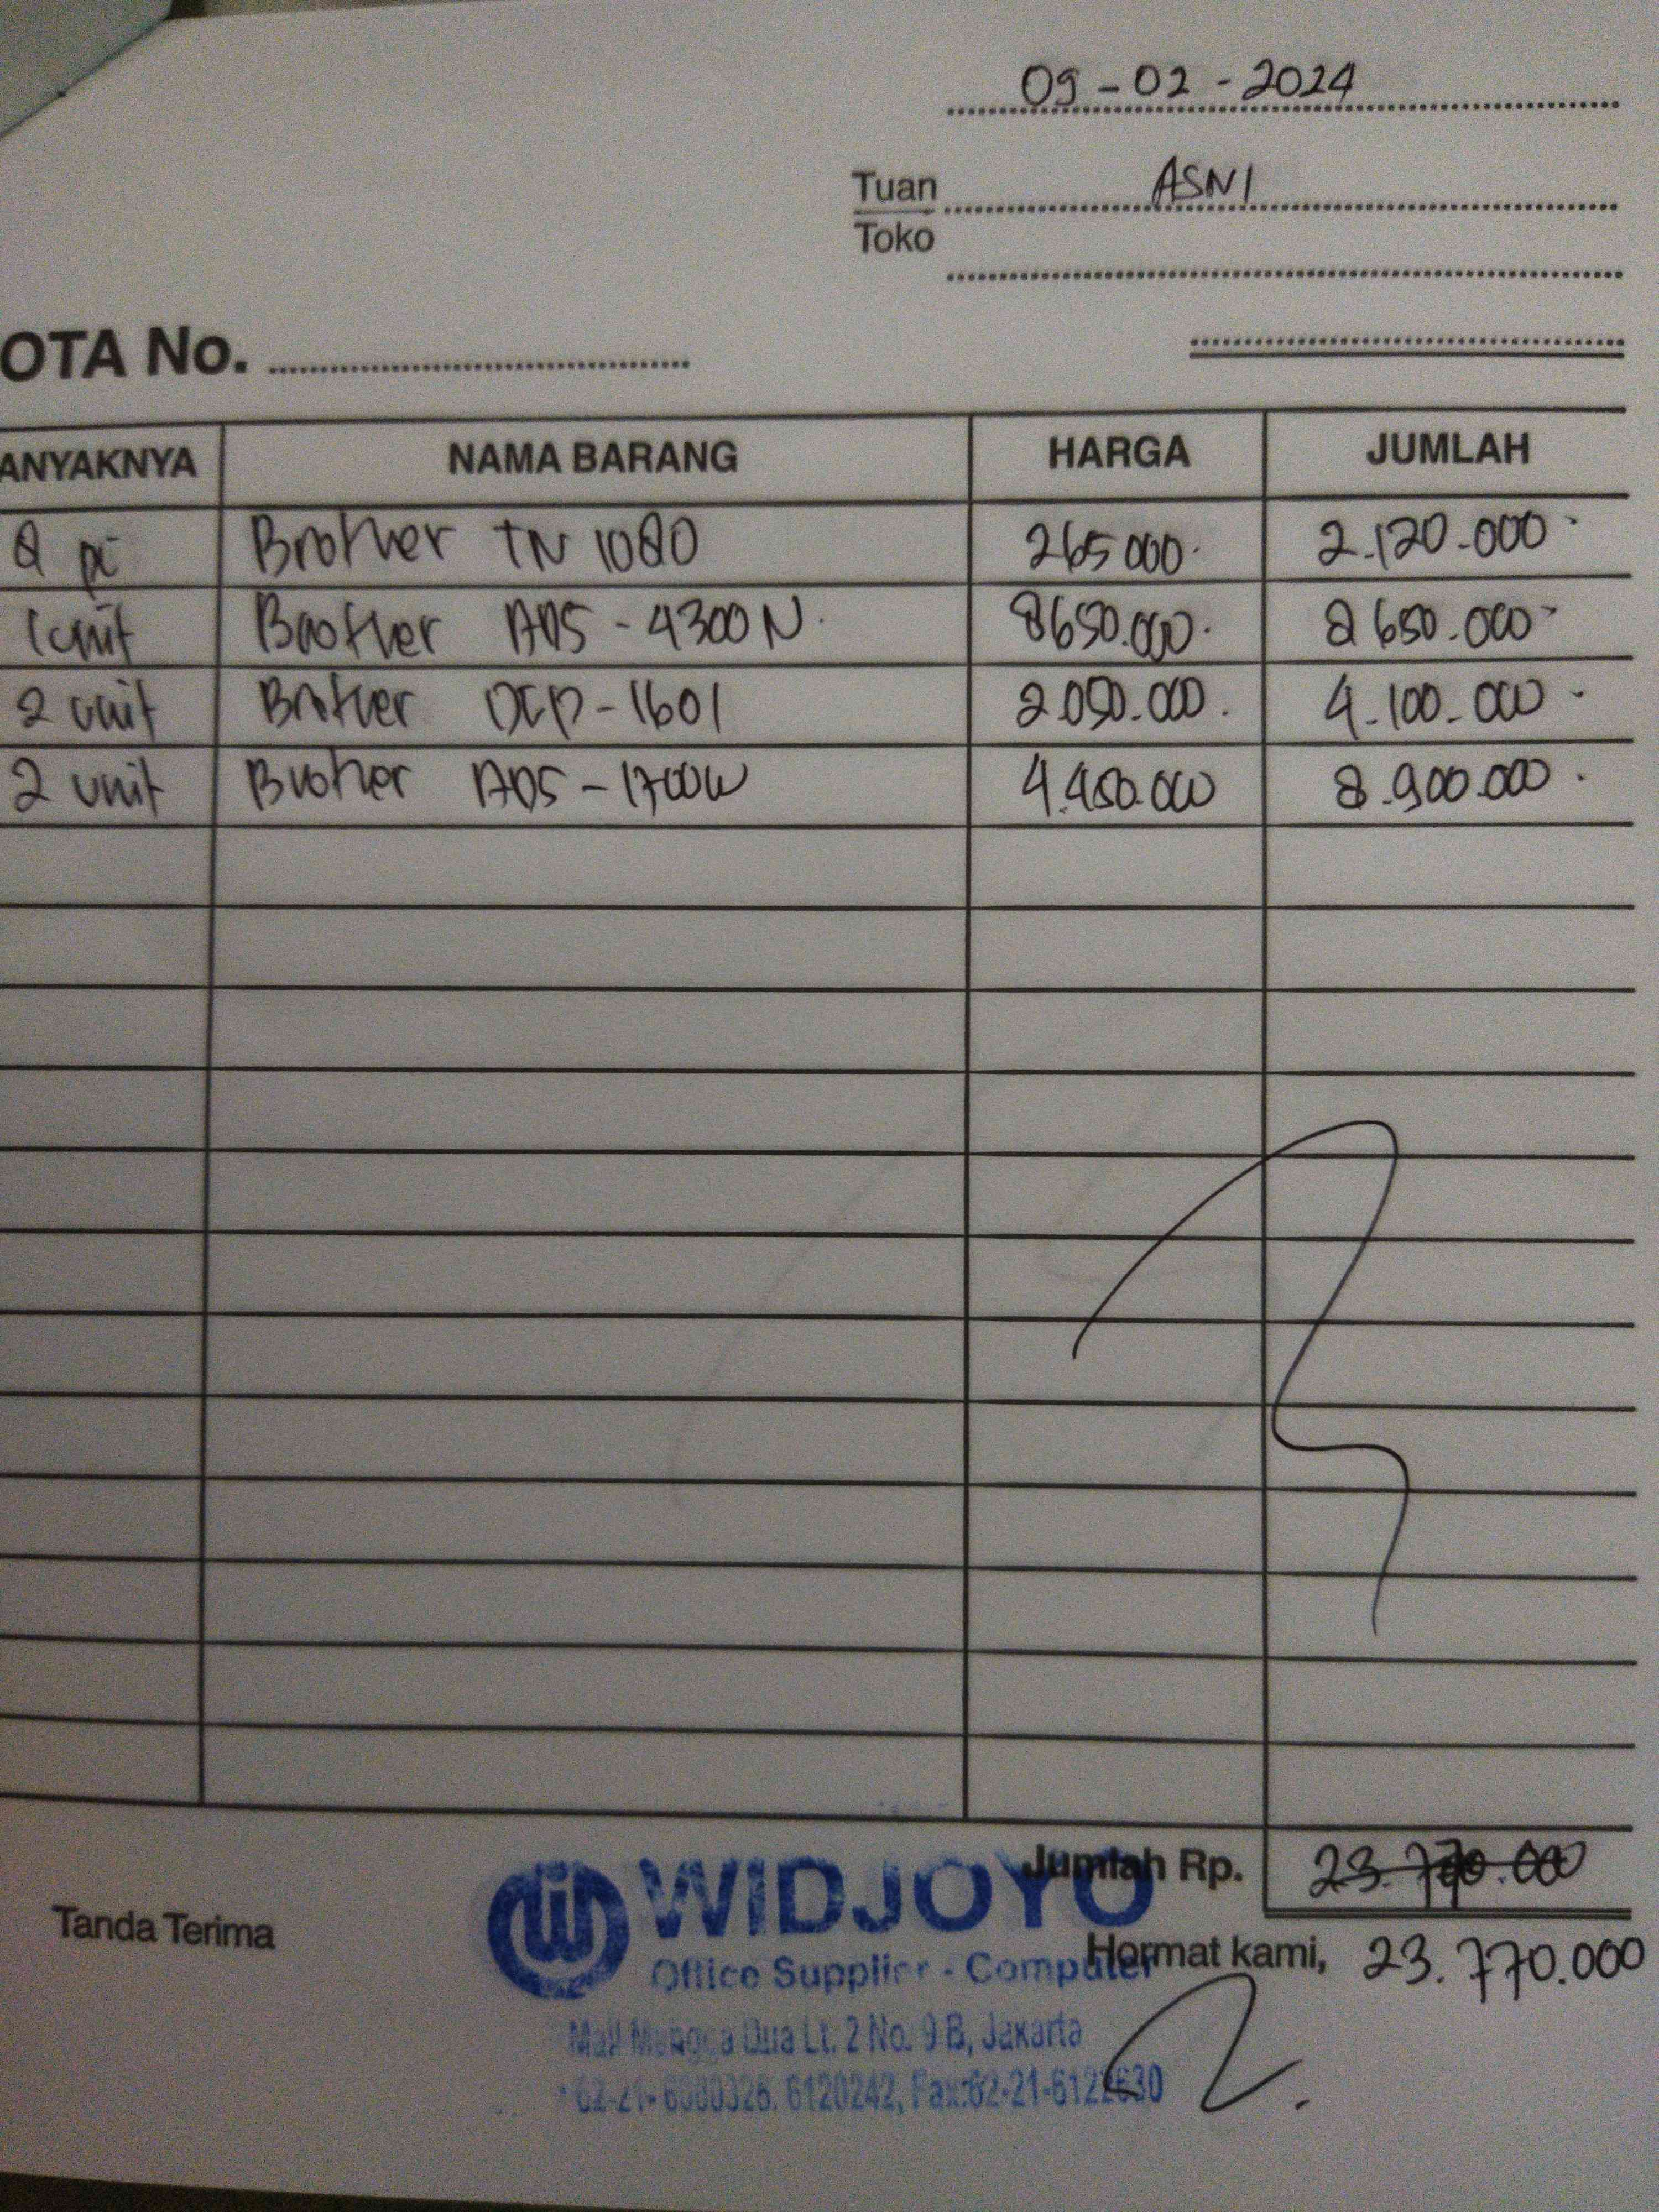 09-02-2024
Tuan ASNI
Toko
OTA No.
ANYAKNYA NAMA BARANG HARGA JUMLAH
8 pc Brother TN 1080 265 000 2.120.000
1 unit Brother ADS-4300 N 8650.000 8 650.000
2 unit Brother DCP-1601 2.050.000 4.100.000
2 unit Brother ADS-1700W 4.450.000 8.900.000
Jumlah Rp. 23.770.000
WIDJOYO
Tanda Terima
Hormat kami, 23.770.000
Office Supplier - Computer
Mall Mangga Dua Lt. 2 No. 9 B, Jakarta
6120242, Fax:62-21-6122630